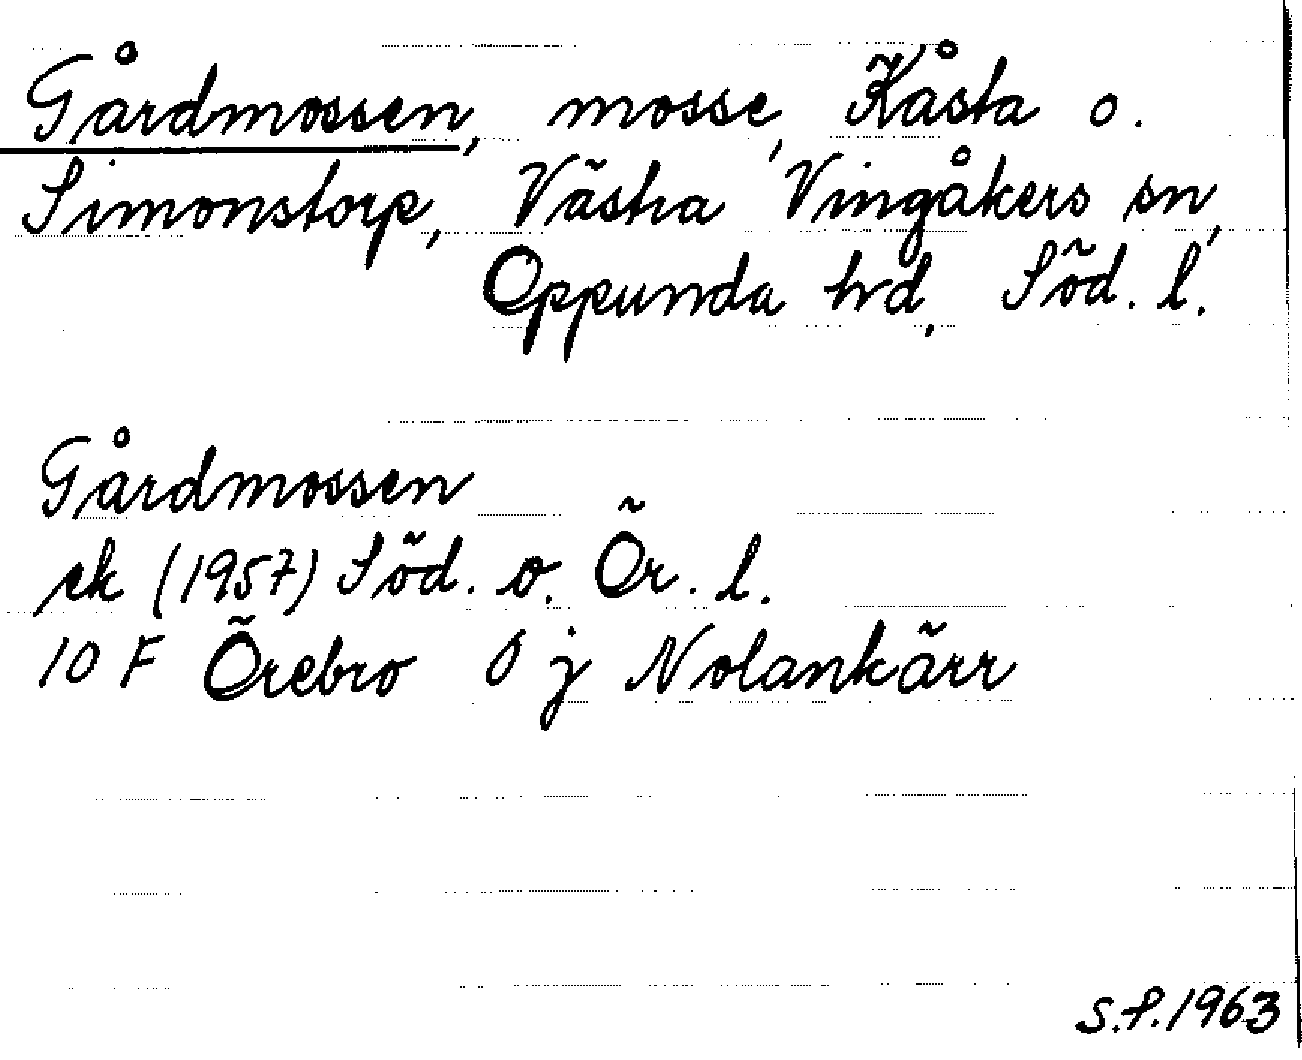 Gårdmossen, mosse, Kåsta o.
Simonstorp, Västra Vingåkers sn,
Oppunda hd, Söd. l.
Gårdmossen
ek (1957) Söd. o. Ör. l.
10 F Örebro 0 j Nolankärr
S.P. 1963